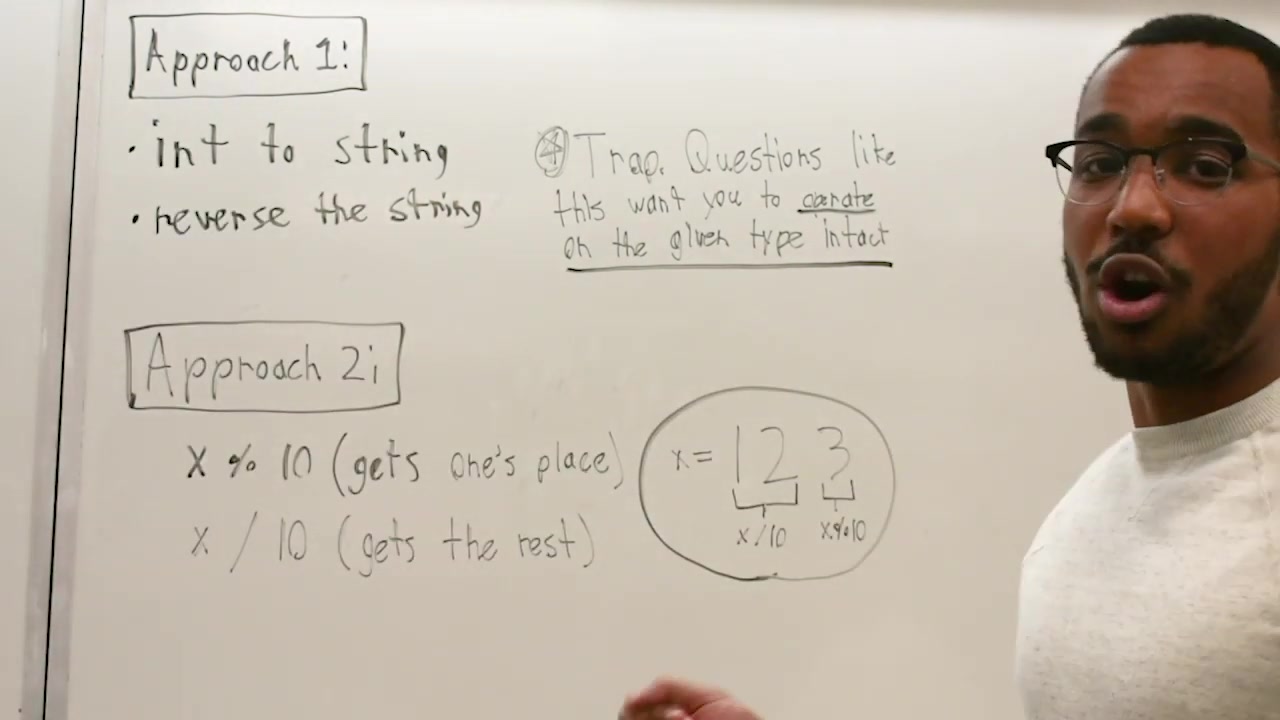 Approach 1:
• int to string
• reverse the string
* Trap. Questions like
this want you to operate
on the given type intact
Approach 2:
x % 10 (gets one's place)
x / 10 (gets the rest)
x = 12 3
x/10 x%10